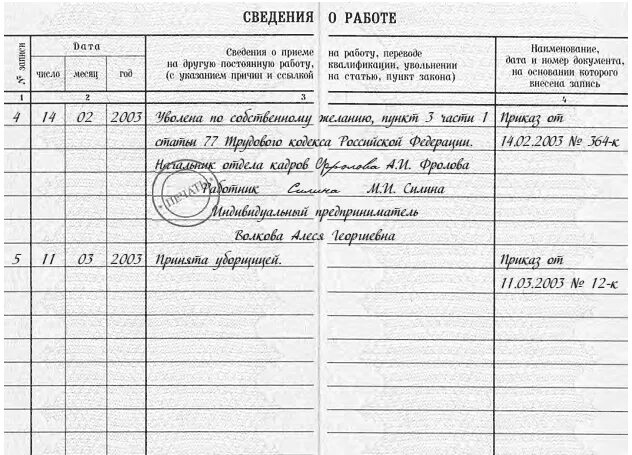 СВЕДЕНИЯ О РАБОТЕ
№ записи
Дата
число
месяц
год
Сведения о приеме на работу, переводе
на другую постоянную работу, квалификации, увольнении
(с указанием причин и ссылкой на статью, пункт закона)
Наименование,
дата и номер документа,
на основании которого
внесена запись
1 2 3 4
4 14 02 2003 Уволена по собственному желанию, пункт 3 части 1 Приказ от
статьи 77 Трудового кодекса Российской Федерации. 14.02.2003 № 364-к
Начальник отдела кадров Фролова А.И. Фролова
ПЕЧАТЬ
Работник Силина М.И. Силина
Индивидуальный предприниматель
Волкова Алеся Георгиевна
5 11 03 2003 Принята уборщицей. Приказ от
11.03.2003 № 12-к